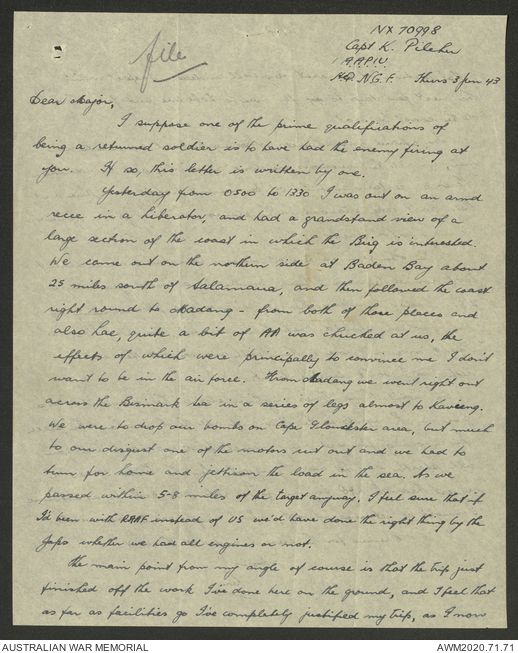 NX 70998
file
Capt K. Pilcher
1 A.A.P.I.U.
HQ N.G.F. Thurs 3 Jun 43
Dear Major,
I suppose one of the prime qualifications of
being a returned soldier is to have had the enemy firing at
you. If so, this letter is written by one.
Yesterday from 0500 to 1330 I was out on an armd
recce in a Liberator, and had a grandstand view of a
large section of the coast in which the Brig is interested.
We came out on the northern side at Baden Bay about
25 miles south of Salamaua, and then followed the coast
right round to Madang - from both of those places and
also Lae, quite a bit of AA was chucked at us, the
effects of which were principally to convince me I don't
want to be in the air force. From Madang we went right out
across the Bismark Sea in a series of legs almost to Kavieng.
We were to drop our bombs on Cape Gloucester area, but much
to our disgust one of the motors cut out and we had to
turn for home and jettison the load in the sea. As we
passed within 5-8 miles of the target anyway, I feel sure that if
I'd been with RAAF instead of US we'd have done the right thing by the
Japs whether we had all engines or not.
The main point from my angle of course is that the trip just
finished off the work I've done here on the ground, and I feel that
as far as facilities go I've completely justified my trip, as I now
AUSTRALIAN WAR MEMORIAL AWM2020.71.71